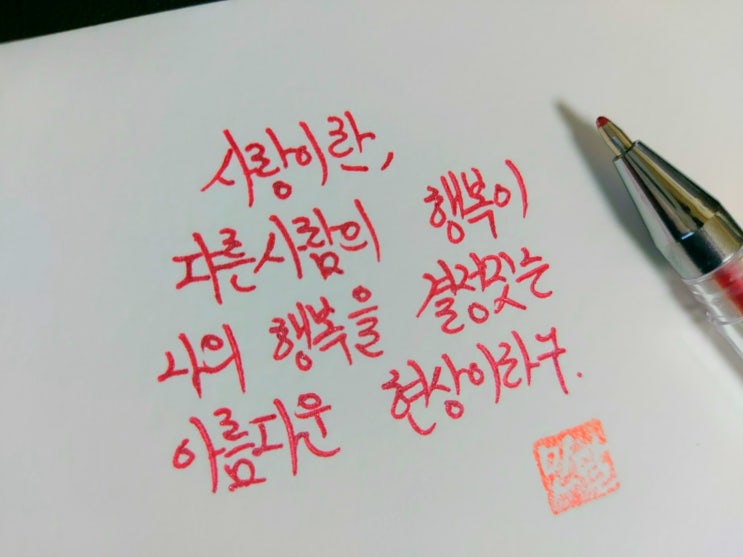 사랑이란,
다른사람의 행복이
나의 행복을 결정짓는
아름다운 현상이라구.